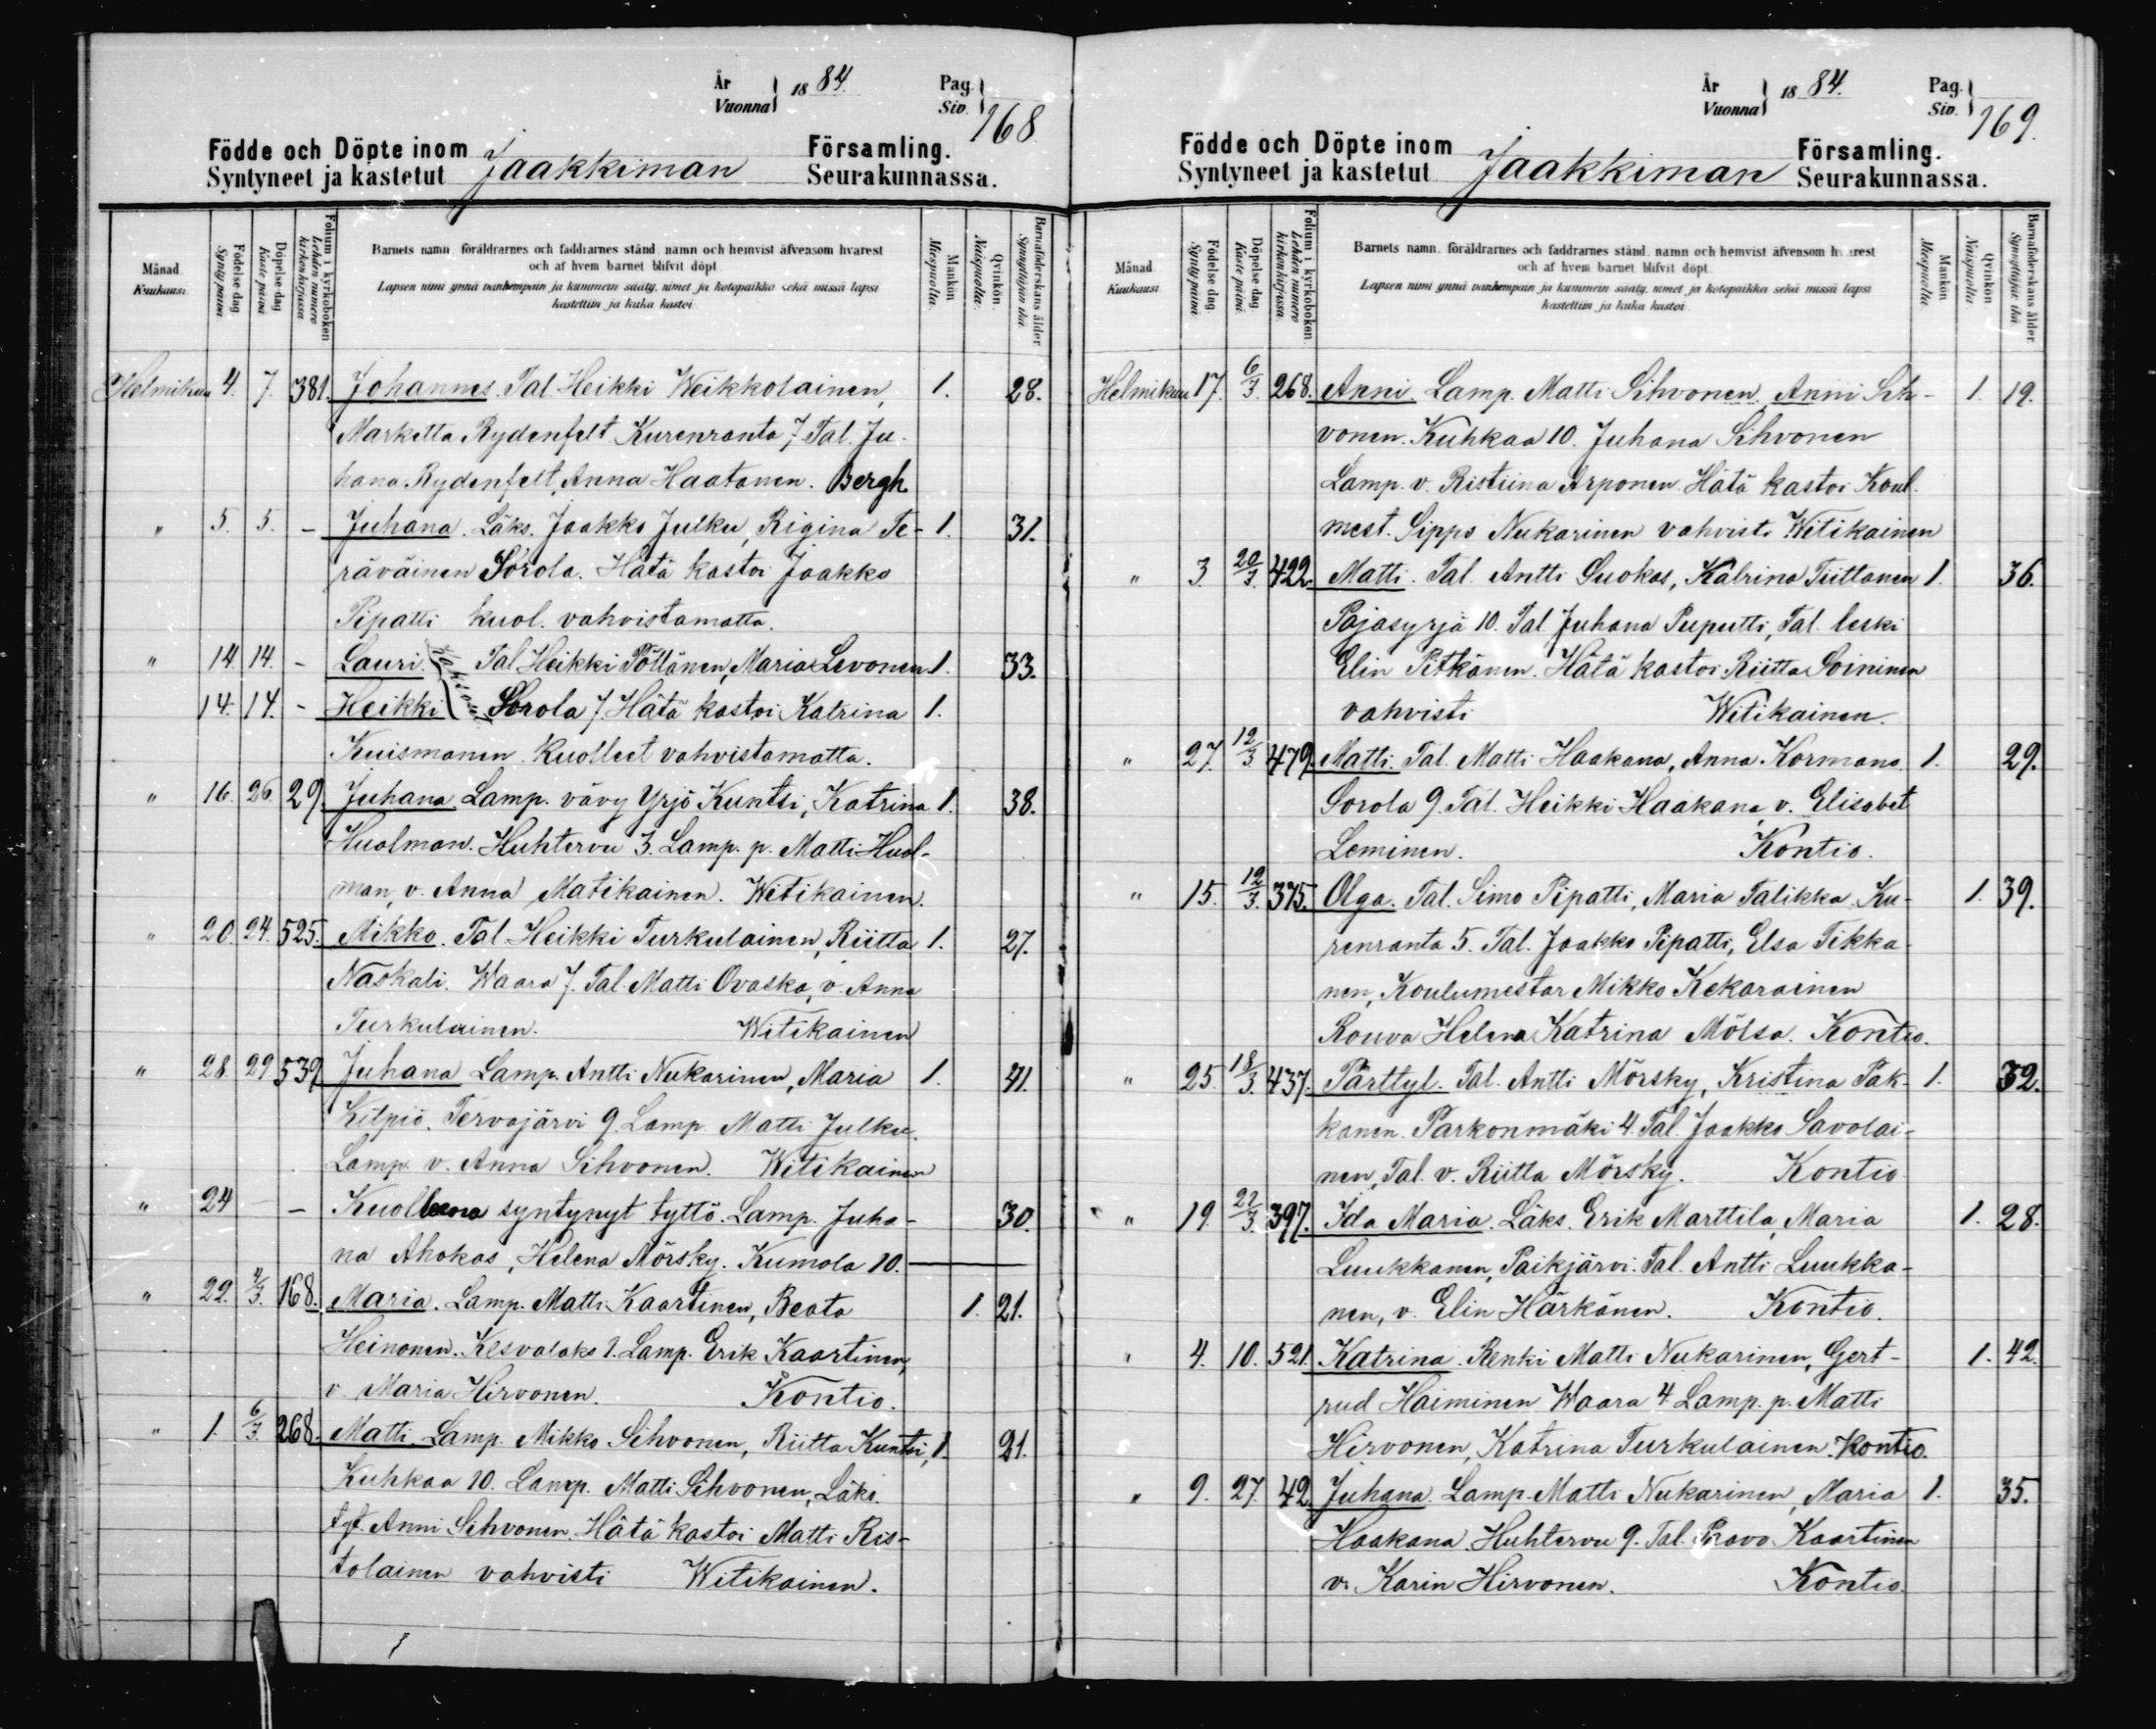 År
Vuonna
1884.
Pag.
Siv.
168
Födde och Döpte inom
Syntyneet ja kastetut
Jaakkiman
Församling.
Seurakunnassa.
Månad
Kuukausi
Födelse dag
Synty päivä
Döpelse dag
Kaste päivä
Folium i kyrkoboken
Lehden numero
kirkonkirjassa
Barnets namn, föräldrarnes och faddrarnes stånd, namn och hemvist äfvensom hvarest
och af hvem barnet blifvit döpt
Lapsen nimi ynnä vanhempain ja kummein sääty, nimet ja kotopaikka sekä missä lapsi
kastettiin ja kuka kastoi
Mankön
Miespuolta
Qvinkön
Naispuolta
Barnaföderskans ålder
Synnyttäjän ikä
Helmikuu 4. 7. 381. Johannes. Tal. Heikki Weikkolainen, 1. 28.
Marketta Rydenfelt. Kurenranta 7. Tal. Ju-
hana Rydenfelt, Anna Haatanen. Bergh.
" 5. 5. - Juhana. Läks. Jaakko Julku, Rigina Te- 1. 31.
räväinen Sorola. Hätä kastoi Jaakko
Pipatti kuol. vahvistamatta.
" 14. 14. - Lauri. Kaksoiset Tal Heikki Pöllänen, Maria Levonen 1. 33.
14. 14. - Heikki Sorola 7. Hätä kastoi Katrina 1.
Kuismanen. Kuolleet vahvistamatta.
" 16. 26 29 Juhana. Lamp. vävy Yrjö Kuntsi, Katrina 1. 38.
Huolman. Huhtervu 3. Lamp. p. Matti Huol-
man, v. Anna Matikainen. Witikainen.
" 20. 24. 525. Mikko. Tal. Heikki Turkulainen, Riitta 1. 27.
Naskali. Waara 7. Tal. Matti Ovaska, v. Anna
Turkulainen. Witikainen
" 28. 29 539 Juhana Lamp. Antti Nukarinen, Maria 1. 41.
Kilpiö. Tervajärvi 9. Lamp. Matti Julku.
Lamp. v. Anna Sihvonen. Witikainen
" 24 - Kuolleena syntynyt tyttö. Lamp. Juha- 30.
na Ahokas, Helena Mörsky. Kumola 10.
" 22. 4/3. 168. Maria. Lamp. Matti Kaartinen, Beata 1. 21.
Heinonen. Kesvalaks 1. Lamp. Erik Kaartinen,
v. Maria Hirvonen. Kontio.
" 1. 6/3. 268. Matti. Lamp. Mikko Sihvonen, Riitta Kuntsi, 1. 21.
Kuhkaa 10. Lamp. Matti Sihvonen, Läks.
tyt. Anni Sihvonen. Hätä kastoi Matti Ris-
tolainen vahvisti Witikainen.
År
Vuonna
1884.
Pag.
Siv.
169.
Födde och Döpte inom
Syntyneet ja kastetut
Jaakkiman
Församling.
Seurakunnassa.
Månad
Kuukausi
Födelse dag
Synty päivä
Döpelse dag
Kaste päivä
Folium i kyrkoboken
Lehden numero
kirkonkirjassa
Barnets namn, föräldrarnes och faddrarnes stånd, namn och hemvist äfvensom hvarest
och af hvem barnet blifvit döpt
Lapsen nimi ynnä vanhempain ja kummein sääty, nimet ja kotopaikka sekä missä lapsi
kastettiin ja kuka kastoi
Mankön
Miespuolta
Qvinkön
Naispuolta
Barnaföderskans ålder
Synnyttäjän ikä
Helmikuu 17. 6/3. 268. Anni. Lamp. Matti Sihvonen, Anni Sih- 1. 19.
vonen. Kuhkaa 10. Juhana Sihvonen
Lamp. v. Ristiina Arponen. Hätä kastoi Koul.
mest. Sipps Nukarinen vahvisti Witikainen
" 3. 20/3. 422. Matti. Tal. Antti Suokas, Katrina Tiittanen 1. 36.
Pajasyrjä 10. Tal Juhana Puputti, Tal. leski
Elin Pitkänen. Hätä kastoi Riitta Soininen
vahvisti Witikainen.
" 27. 12/3. 479. Matti. Tal. Matti Haakana, Anna Kormano. 1. 29.
Sorola 9. Tal. Heikki Haakana, v. Elisabet
Leminen. Kontio.
" 15. 12/3. 375. Olga. Tal. Simo Pipatti, Maria Talikka. Ku- 1. 39.
renranta 5. Tal. Jaakko Pipatti, Elsa Tikka-
nen, Koulumestar Mikko Kekarainen
Rouva Helena Katrina Mölsa. Kontio.
" 25. 18/3. 437. Pärttyl. Tal. Antti Mörsky, Kristina Pak- 1. 32.
kanen. Parkonmäki 4. Tal. Jaakko Savolai-
nen, Tal. v. Riitta Mörsky. Kontio
" 19. 22/3. 397. Ida Maria. Läks. Erik Marttila, Maria 1. 28.
Luukkanen, Paikjärvi. Tal. Antti Luukka-
nen, v. Elin Härkönen. Kontio.
" 4. 10. 521. Katrina. Renki Matti Nukarinen, Gert- 1. 42.
rud Haiminen Waara 4 Lamp. p. Matti
Hirvonen, Katrina Turkulainen. Kontio.
" 9. 27. 42. Juhana. Lamp. Matti Nukarinen, Maria 1. 35.
Haakana. Huhtervu 9. Tal. Paavo Kaartinen
v. Karin Hirvonen. Kontio.